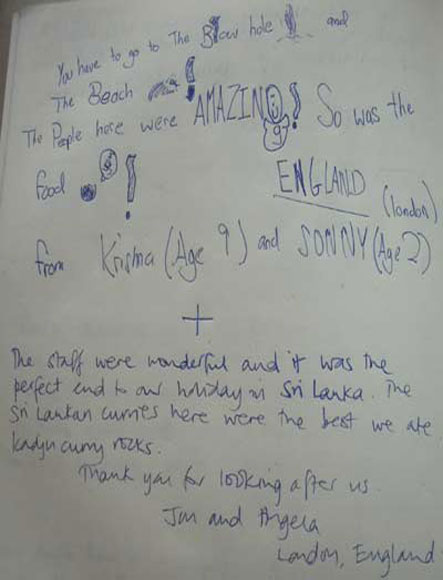 You have to go to The Blow hole ! and
The Beach !
The People here were AMAZING! So was the
food !
ENGLAND
(london)
from Krisma (Age 9) and SONNY (Age 2)
+
The staff were wonderful and it was the
perfect end to our holiday in Sri Lanka. The
Sri Lankan curries here were the best we ate
kadju curry rocks.
Thank you for looking after us.
Jon and Angela
London, England